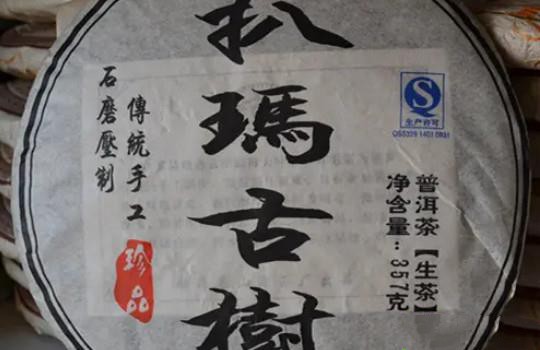 扒瑪古樹
傳統手工
石磨壓制
珍品
生产许可
QS5329 1401 0931
普洱茶【生茶】
净含量:357克